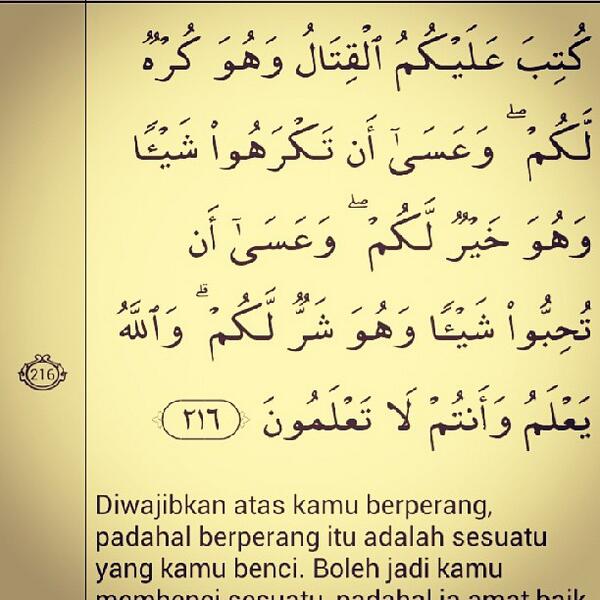 كُتِبَ عَلَيْكُمُ ٱلْقِتَالُ وَهُوَ كُرْهٌۭ
لَّكُمْ ۖ وَعَسَىٰٓ أَن تَكْرَهُوا۟ شَيْـًۭٔا
وَهُوَ خَيْرٌۭ لَّكُمْ ۖ وَعَسَىٰٓ أَن
تُحِبُّوا۟ شَيْـًۭٔا وَهُوَ شَرٌّۭ لَّكُمْ ۗ وَٱللَّهُ
216
يَعْلَمُ وَأَنتُمْ لَا تَعْلَمُونَ ٢١٦
Diwajibkan atas kamu berperang,
padahal berperang itu adalah sesuatu
yang kamu benci. Boleh jadi kamu
membenci sesuatu, padahal ia amat baik